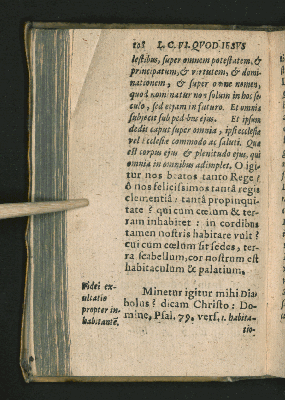 108 L. C. VI. QUOD JESUS
lestibus, super omnem potestatem, &
principatum, & virtutem, & domi-
nationem, & super omne nomen,
quod nominatur non solum in hoc se-
culo, sed etiam in futuro. Et omnia
subjecit sub pedibus ejus. Et ipsum
dedit caput super omnia, ipsi ecclesiæ
vel ecclesiæ commodo ac saluti. Quæ
est corpus ejus & plenitudo ejus, qui
omnia in omnibus adimplet. O igi-
tur nos beatos tanto Rege!
ô nos felicissimos tantâ regis
clementiâ: tantâ propinqui-
tate? qui cum cœlum & ter-
ram inhabitet: in cordibus
tamen nostris habitare vult?
cui cum cœlum sit sedes, ter-
ra scabellum, cor nostrum est
habitaculum & palatium.
Fidei ex-
ultatio
propter in-
habitantē.
Minetur igitur mihi Dia-
bolus? dicam Christo: Do-
mine, Psal. 79. vers. 1. habita-
tio-